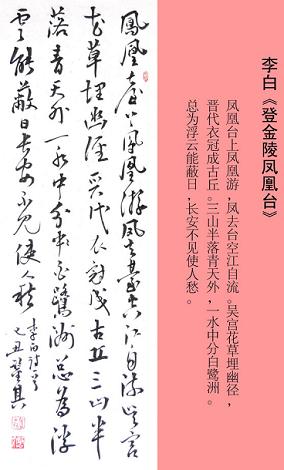 李白《登金陵凤凰台》
凤凰台上凤凰游，凤去台空江自流。吴宫花草埋幽径，
晋代衣冠成古丘。三山半落青天外，一水中分白鹭洲。
总为浮云能蔽日，长安不见使人愁。
鳳凰臺上鳳凰游鳳去臺空江自流吴宫
花草埋幽徑晋代衣冠成古丘三山半
落青天外一水中分白鷺洲總為浮
雲能蔽日長安不見使人愁
李白詩
乙丑